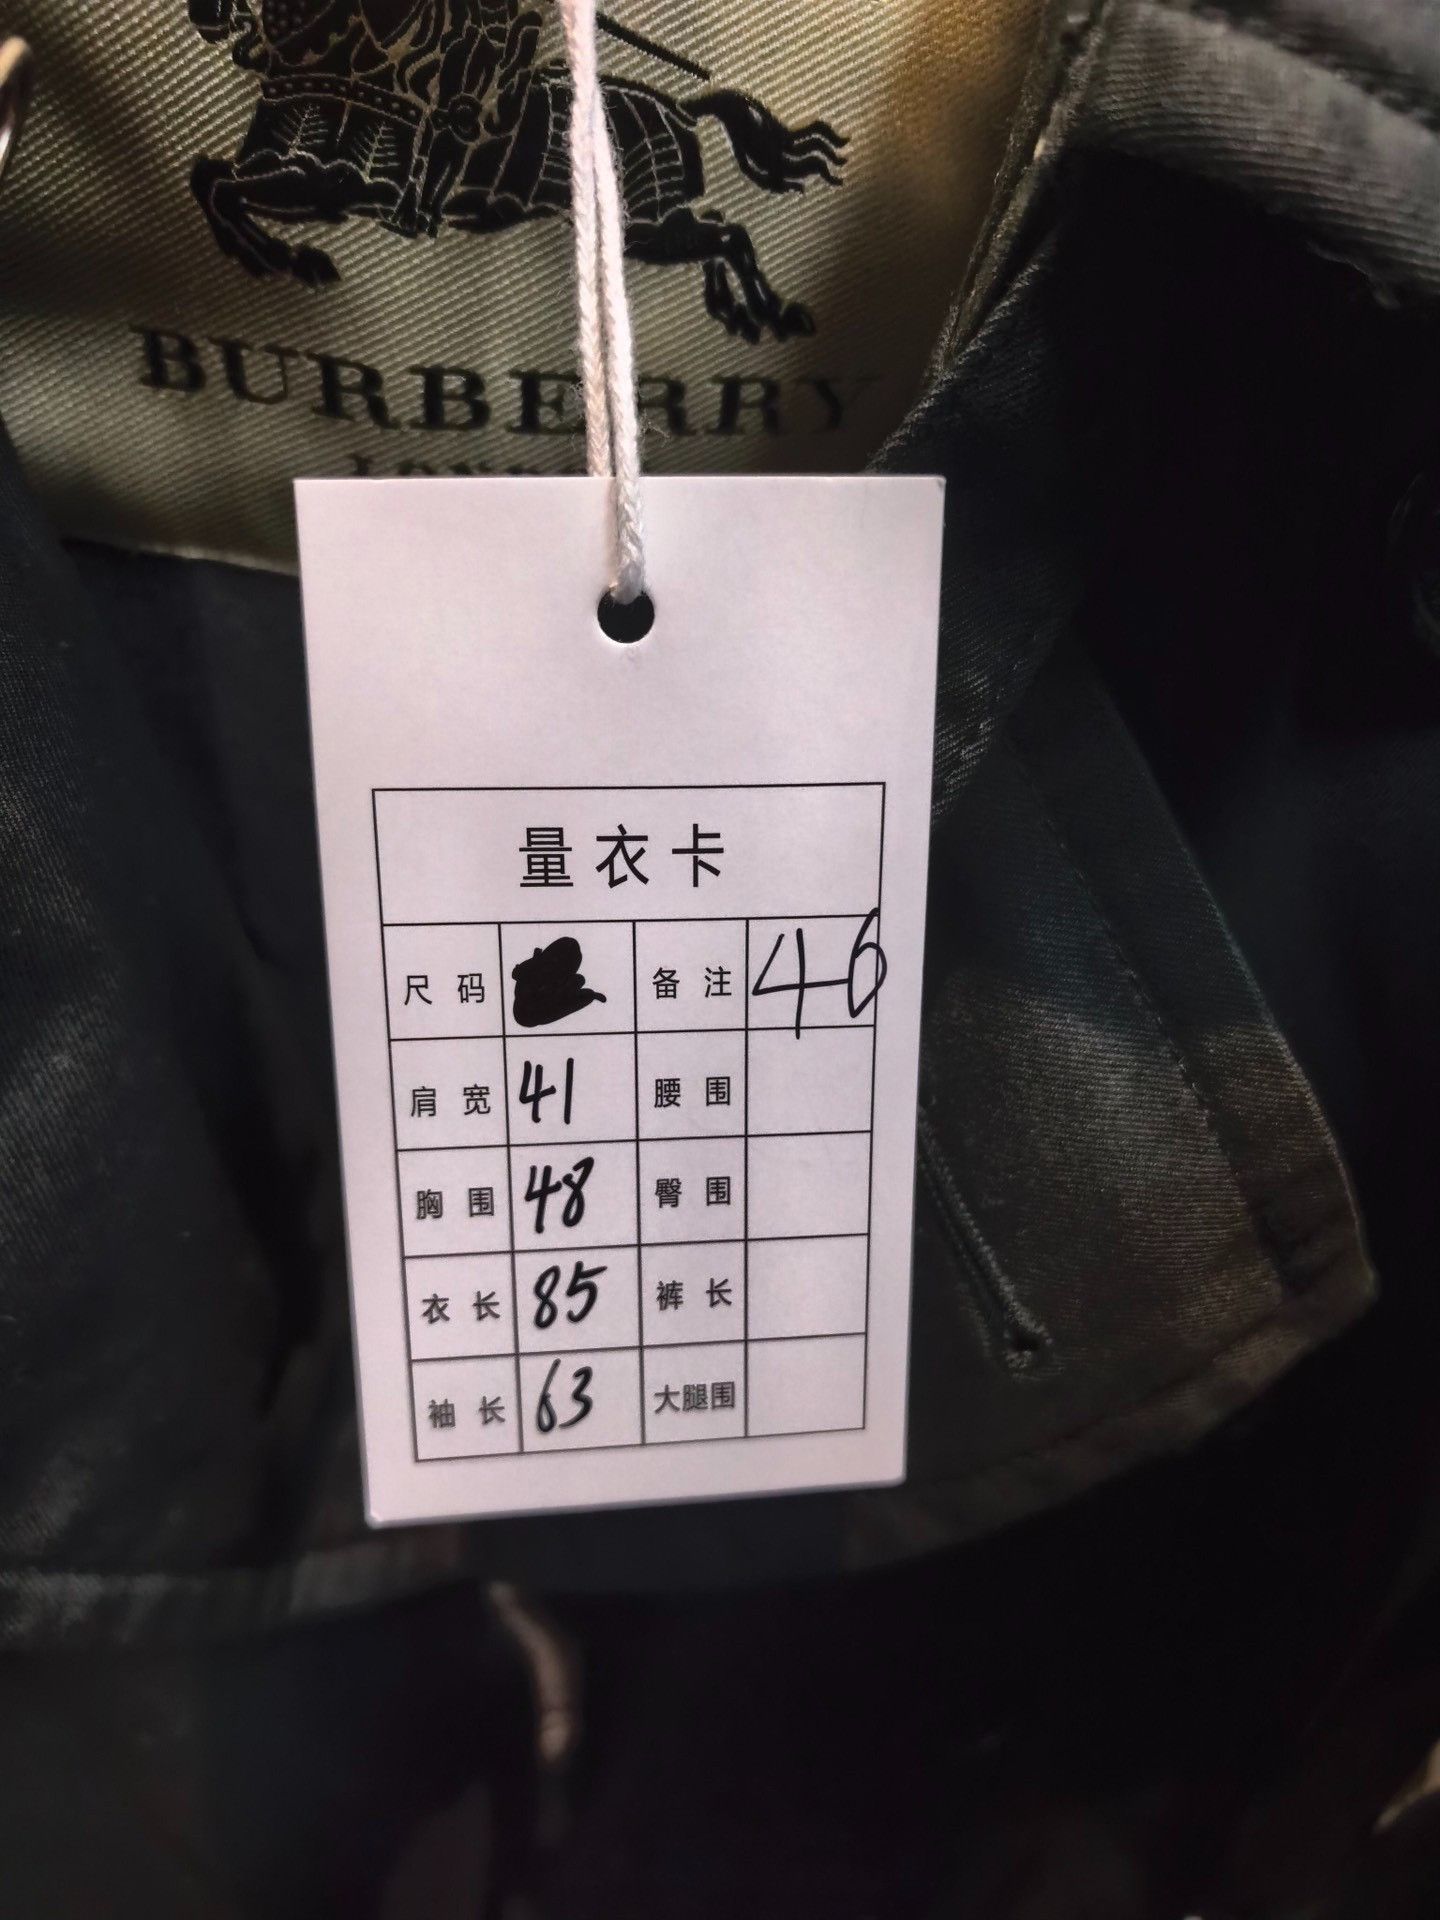 BURBERRY
LONDON
量衣卡
尺码 备注 46
肩宽 41 腰围
胸围 48 臀围
衣长 85 裤长
袖长 63 大腿围